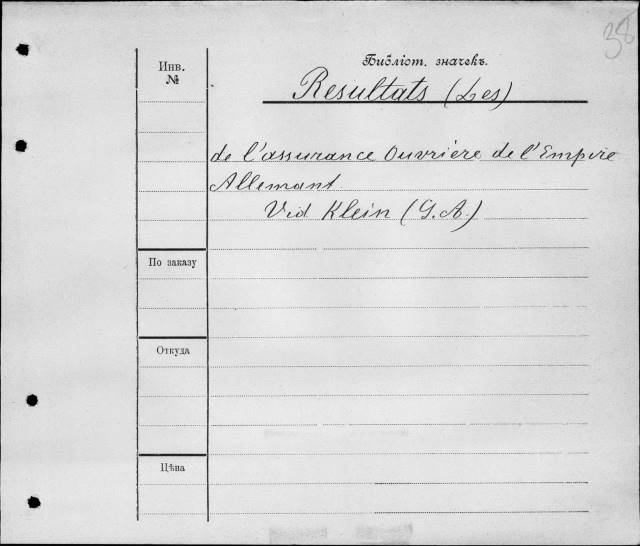 38
Инв.
№
Библіот. значекъ.
Resultats (Les)
de l'assurance Ouvrière de l'Empire
Allemant
Vid Klein (G. A.)
По заказу
Откуда
Цѣна